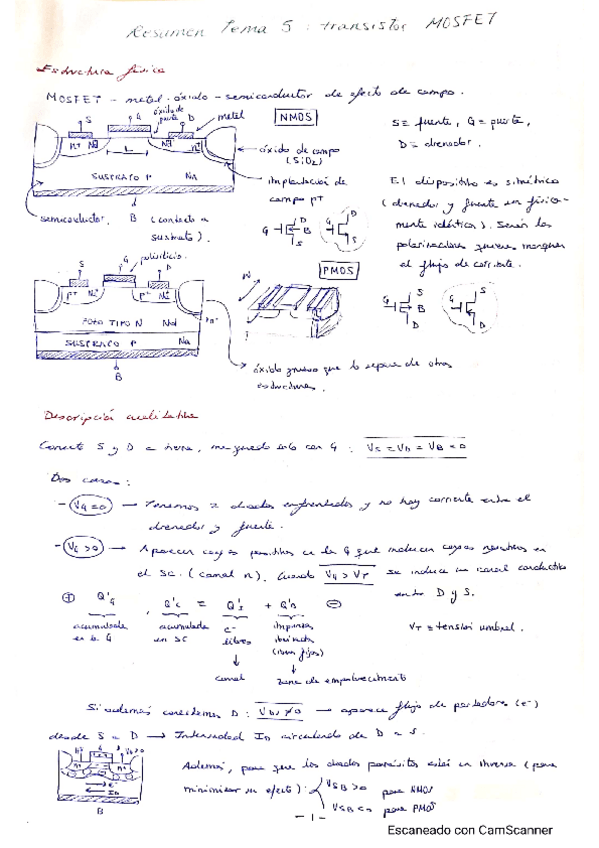 Resumen Tema 5 : transistor MOSFET
Estructura física
MOSFET - metal-óxido-semiconductor de efecto de campo.
S G óxido de puerta D metal
NMOS
S ≡ fuente, G = puerta,
D = drenador.
n+ Nd L n+ Nd
SUSTRATO P Na
óxido de campo
(SiO2)
implantación de
campo p+
semiconductor.
B (contacto a
sustrato).
G D B S
G D S
El dispositivo es simétrico
(drenador y fuente son física-
mente idénticos). Serán las
polarizaciones quienes marquen
el flujo de corriente.
S G polisilicio D
PMOS
p+ p+
POZO TIPO N Nd
SUSTRATO P Na
B
W
G S B D
G S D
óxido grueso que lo separa de otras
estructuras.
Descripción cualitativa
Conecto S y D a tierra, me quedo solo con G : VS = VD = VB = 0
Dos casos :
- VG = 0 → Tenemos 2 diodos enfrentados y no hay corriente entre el
drenador y fuente.
- VG > 0 → Aparecen cargas positivas en la G que inducen cargas negativas en
el SC. (canal n). Cuando VG > VT se induce un canal conductivo
entre D y S.
⊕ Q'G , Q'C = Q'S + Q'B ⊖
acumulada
en la G
acumulada
en SC
e-
libres
impurezas
ionizadas
(iones fijos)
VT = tensión umbral.
canal
zona de empobrecimiento
Si además conectamos D : → aparece flujo de portadores (e-)
desde S a D → Intensidad ID circulando de D a S.
S G D
n+ n+
e-
ID
B
Además, para que los diodos parásitos estén en inversa (para
minimizar su efecto) : VSB > 0 para NMOS
VSB < 0 para PMOS
- 1 -
Escaneado con CamScanner